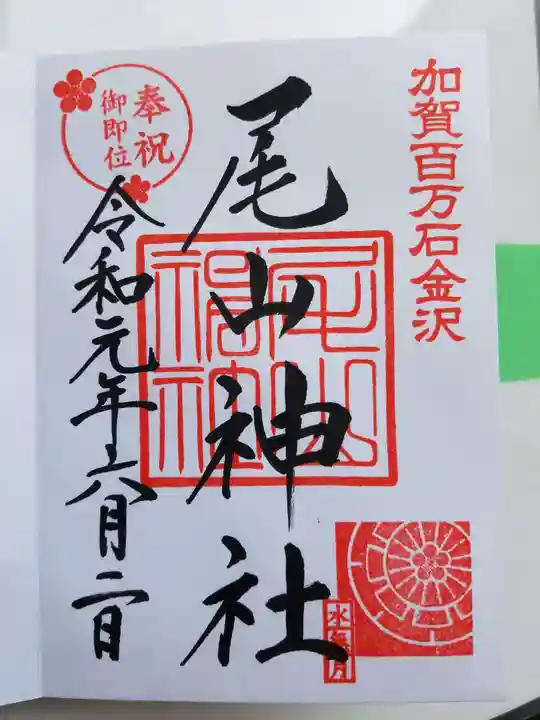 加賀百万石金沢
尾山神社
奉祝
御即位
令和元年六月二日
水無月